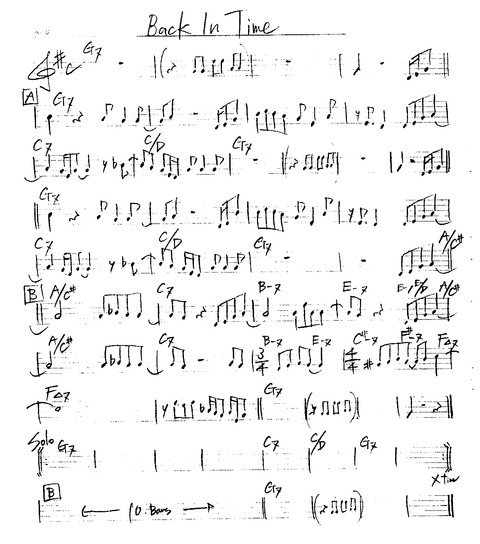 Back In Time
G7
A G7
C7 C/D G7
G7
C7 C/D G7 A/C#
B A/C# C7 B-7 E-7 E-7 E/D A/C#
A/C# C7 B-7 E-7 C#-7 F#-7 F△7
3/4 4/4
F△7 G7
Solo G7 C7 C/D G7
X time
B ← 10 Bars → G7